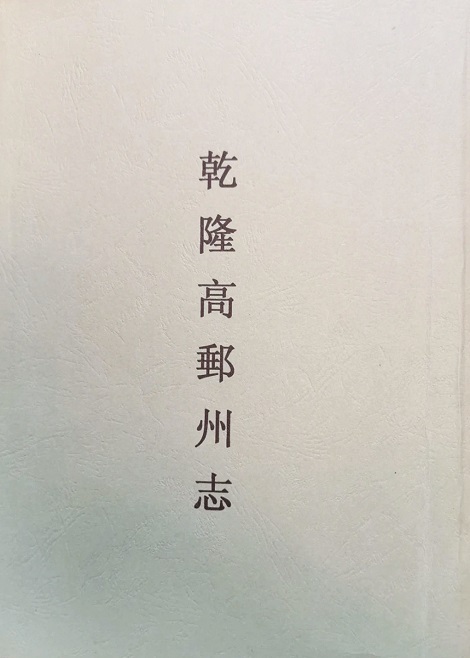 乾隆高郵州志